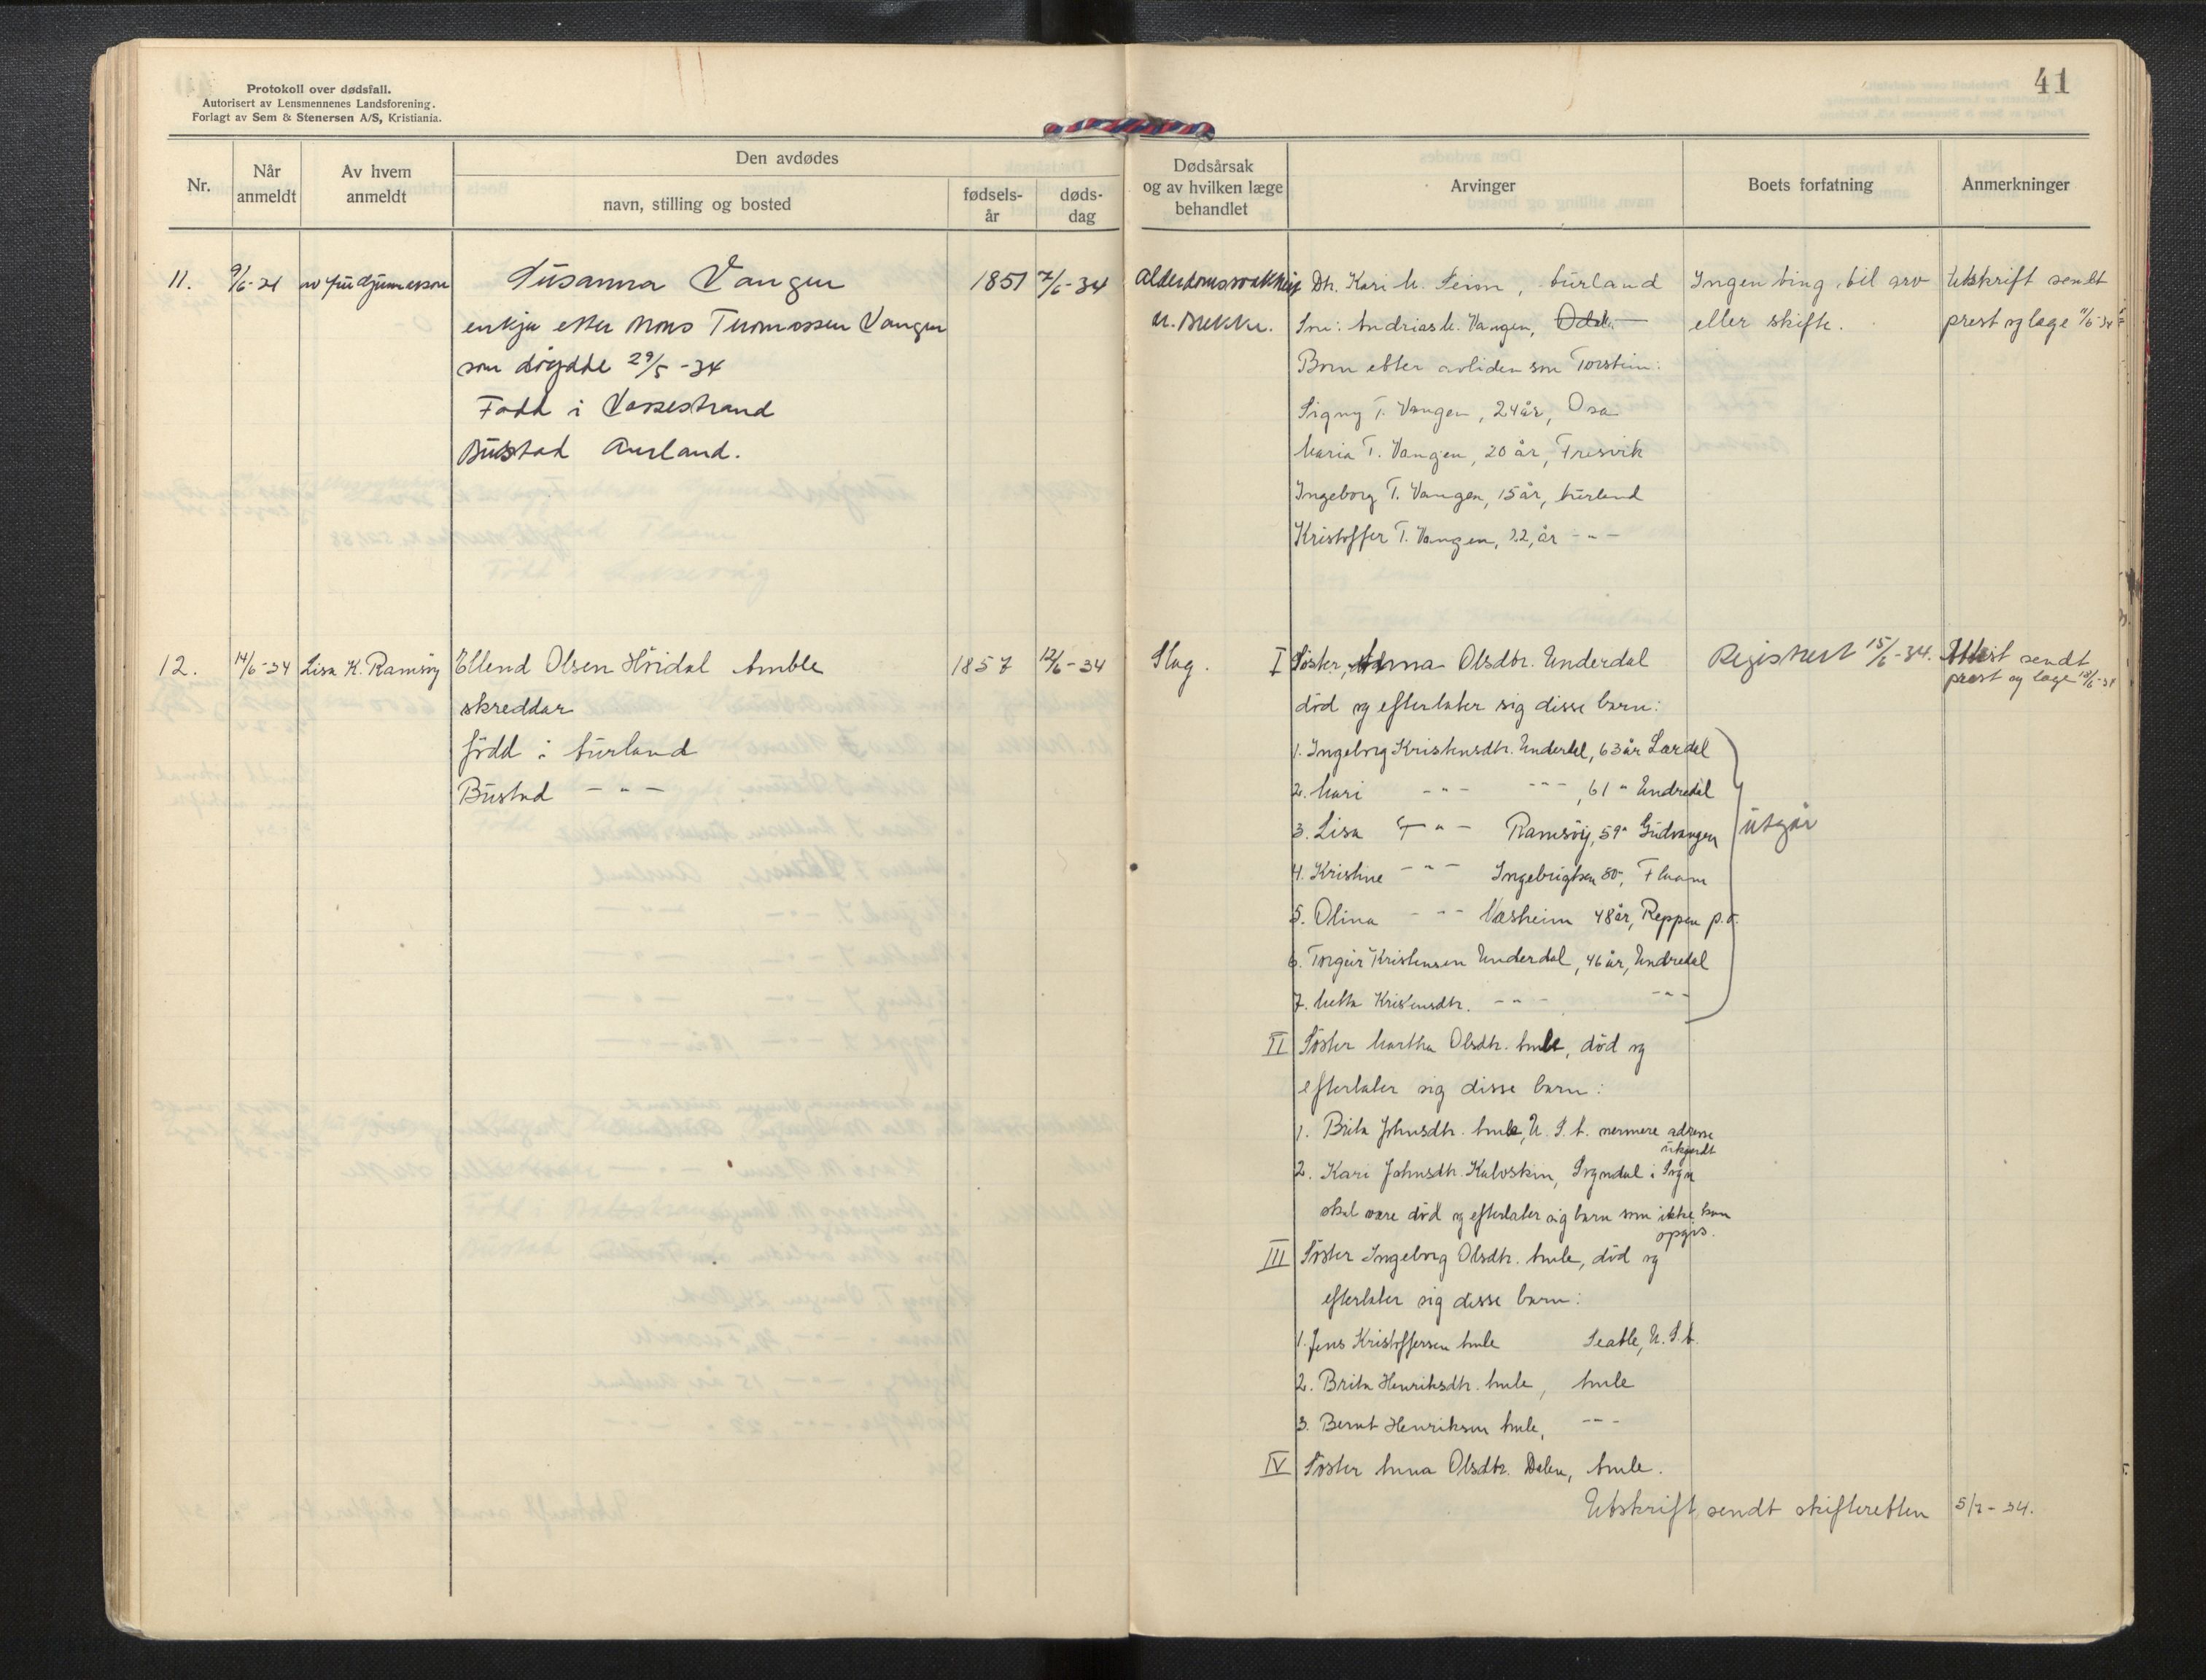 41
Protokoll over dødsfall.
Autorisert av Lensmennenes Landsforening.
Forlagt av Sem & Stenersen A/S, Kristiania.
Nr.
Når anmeldt
Av hvem anmeldt
Den avdødes
navn, stilling og bosted
fødsels-år
døds-dag
Dødsårsak og av hvilken læge behandlet
Arvinger
Boets forfatning
Anmerkninger
11.
9/6-34
Susanna Vangen
enkja etter Mons Tuomassen Vangen
som döydde 29/5-34
Född i Vossestrand
Bustad Aurland.
1851
7/6-34
Alderdomssvakheit
M. Brekke.
Dtr. Kari M. Feim, Aurland
Son: Andrias M. Vangen, Odda
Born etter avliden son Torstein:
Signy T. Vangen, 24 år, Osa
Maria T. Vangen, 20 år, Fresvik
Ingeborg T. Vangen, 15 år, Aurland
Kristoffer T. Vangen, 22, år - " -
Ingen ting til arv
eller skifte.
Utskrift sendt
prest og læge 11/6-34
12.
14/6-34
Lisa K. Ramsöy
Ellend Olsen Höidal Amble
skreddar
född i Aurland
Bustad - " -
1857
12/6-34
Slag.
I Söster, Anna Olsdtr. Underdal
död og efterlater sig disse barn:
1. Ingeborg Kristensdtr. Underdal, 63 år Lærdal
2. Mari - " - - " -, 61 " Undredal
3. Lisa - " - Ramsöy, 59 " Gudvangen
4. Kristine - " - Ingebrigtsen 50 ", Flaam
5. Olina - " - Væsheim 48 år, Reppen p.å.
6. Torgeir Kristensen Underdal, 46 år, Undredal
7. Metta Kristensdtr. - " - - " -
utgår
II Söster Martha Olsdtr. Amle, död og
efterlater sig disse barn:
1. Brita Johnsdtr. Amle, U.S.A. nermere adresse
ukjendt
2. Kari Johnsdtr. Kalvskin, Sogndal i Sogn
skal være död og efterlater sig barn som ikke kan
opgis.
III Söster Ingeborg Olsdtr. Amle, död og
efterlater sig disse barn:
1. Jens Kristoffersen Amle Seatle, U.S.A.
2. Brita Henriksdtr. Amle, Amle
3. Bernt Henriksen Amle, - " -
IV Söster Anna Olsdtr. Dalen, Amle.
Utskrift sendt skifteretten 5/7-34.
Registrert 15/6-34.
Attest sendt
prest og læge 18/6-34